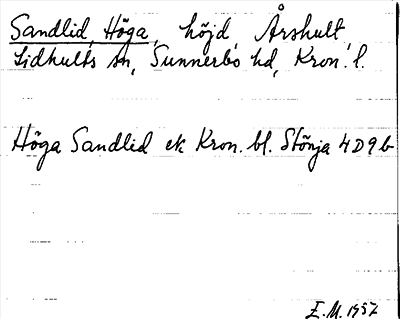 Sandlid, Höga, höjd Årshult,
Lidhults sn, Sunnerbo hd, Kron. l.
Höga Sandlid ek Kron. bl. Stönja 4D9b
E.M. 1957